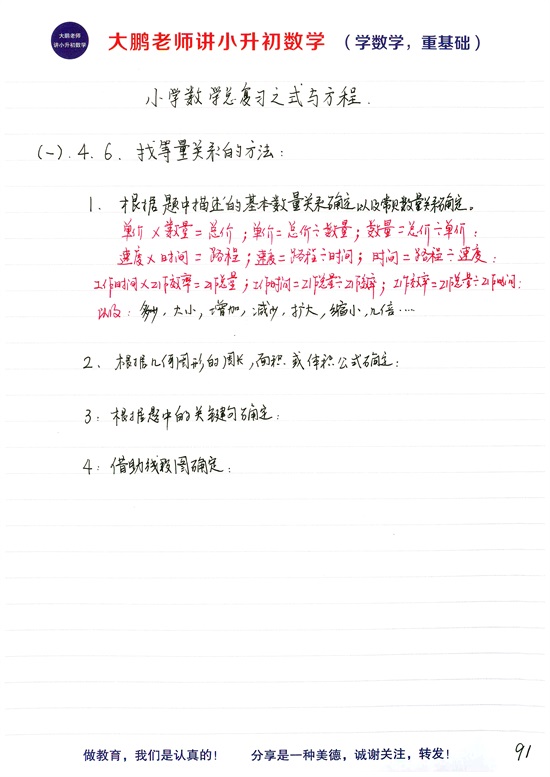 大鹏老师
讲小升初数学
大鹏老师讲小升初数学 （学数学，重基础）
小学数学总复习之式与方程.
(一).4.6、找等量关系的方法:
1、根据题中描述的基本数量关系确定以及常见数量关系确定。
单价×数量=总价；单价=总价÷数量；数量=总价÷单价.
速度×时间=路程；速度=路程÷时间；时间=路程÷速度.
工作时间×工作效率=工作总量；工作时间=工作总量÷工作效率；工作效率=工作总量÷工作时间.
以及：多少，大小，增加，减少，扩大，缩小，几倍....
2、根据几何图形的周长，面积或体积公式确定:
3:根据题中的关键句确定:
4:借助线段图确定:
做教育，我们是认真的！ 分享是一种美德，诚谢关注，转发！
91